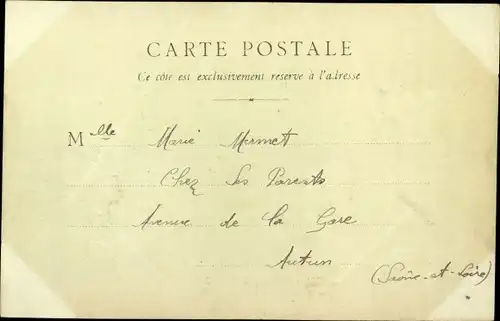 CARTE POSTALE
Ce côté est exclusivement réservé à l'adresse
Mlle Marie Mermet
Chez Ses Parents
Avenue de la Gare
Autun
(Saône-et-Loire)